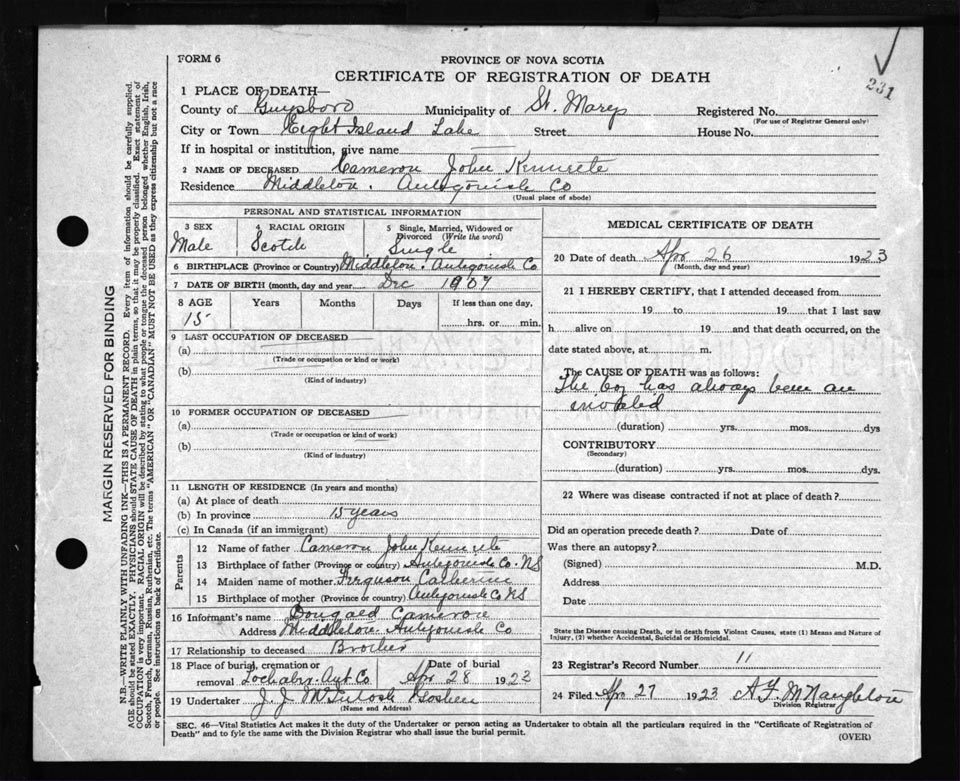 231
FORM 6
PROVINCE OF NOVA SCOTIA
CERTIFICATE OF REGISTRATION OF DEATH
1 PLACE OF DEATH—
County of Guysboro Municipality of St. Marys Registered No.
(For use of Registrar General only)
City or Town Eight Island Lake Street House No.
If in hospital or institution, give name
2 NAME OF DECEASED Cameron John
Residence Middleton. Antigonish Co
(Usual place of abode)
PERSONAL AND STATISTICAL INFORMATION
3 SEX 4 RACIAL ORIGIN 5 Single, Married, Widowed or Divorced (Write the word)
Male Scotch Single
6 BIRTHPLACE (Province or Country) Middleton. Antigonish Co
7 DATE OF BIRTH (month, day and year) Dec 1907
8 AGE Years Months Days If less than one day,
15 hrs. or min.
9 LAST OCCUPATION OF DECEASED
(a)
(Trade or occupation or kind or work)
(b)
(Kind of industry)
10 FORMER OCCUPATION OF DECEASED
(a)
(Trade or occupation or kind of work)
(b)
(Kind of industry)
11 LENGTH OF RESIDENCE (In years and months)
(a) At place of death
(b) In province 15 years
(c) In Canada (if an immigrant)
Parents
12 Name of father Cameron John
13 Birthplace of father (Province or Country) Antigonish Co. NS
14 Maiden name of mother Ferguson Catherine
15 Birthplace of mother (Province or Country) Antigonish Co NS
16 Informant's name Dougald Cameron
Address Middleton Antigonish Co
17 Relationship to deceased Brother
18 Place of burial, cremation or removal Lochabr. Ant. Co Date of burial Apr 28 1923
19 Undertaker J. J. McIntosh Goshen
(Name and Address)
MEDICAL CERTIFICATE OF DEATH
20 Date of death Apr 26 1923
(Month, day and year)
21 I HEREBY CERTIFY, that I attended deceased from
19 to 19 that I last saw
h alive on 19 and that death occurred, on the
date stated above, at m.
The CAUSE OF DEATH was as follows:
The boy has always been an
invalid
(duration) yrs. mos. dys
CONTRIBUTORY
(Secondary)
(duration) yrs. mos. dys.
22 Where was disease contracted if not at place of death?
Did an operation precede death? Date of
Was there an autopsy?
(Signed) M.D.
Address
Date
State the Disease causing Death, or in death from Violent Causes, state (1) Means and Nature of
Injury, (2) whether Accidental, Suicidal or Homicidal.
23 Registrar's Record Number 11
24 Filed Apr 27 1923 A. F. McNaughton
Division Registrar
SEC. 46—Vital Statistics Act makes it the duty of the Undertaker or person acting as Undertaker to obtain all the particulars required in the "Certificate of Registration of
Death" and to fyle the same with the Division Registrar who shall issue the burial permit.
(OVER)
MARGIN RESERVED FOR BINDING
N.B.—WRITE PLAINLY WITH UNFADING INK—THIS IS A PERMANENT RECORD. Every item of information should be carefully supplied.
AGE should be stated EXACTLY. PHYSICIANS should STATE CAUSE OF DEATH in plain terms, so that it may be properly classified. Exact statement of
OCCUPATION is very important. RACIAL ORIGIN will be described by stating to what people or tongue the deceased person belonged whether English, Irish,
Scotch, French, German, Russian, Ruthenian, etc. The terms "AMERICAN" OR "CANADIAN" MUST NOT BE USED as they express citizenship but not a race
or people. See instructions on back of Certificate.